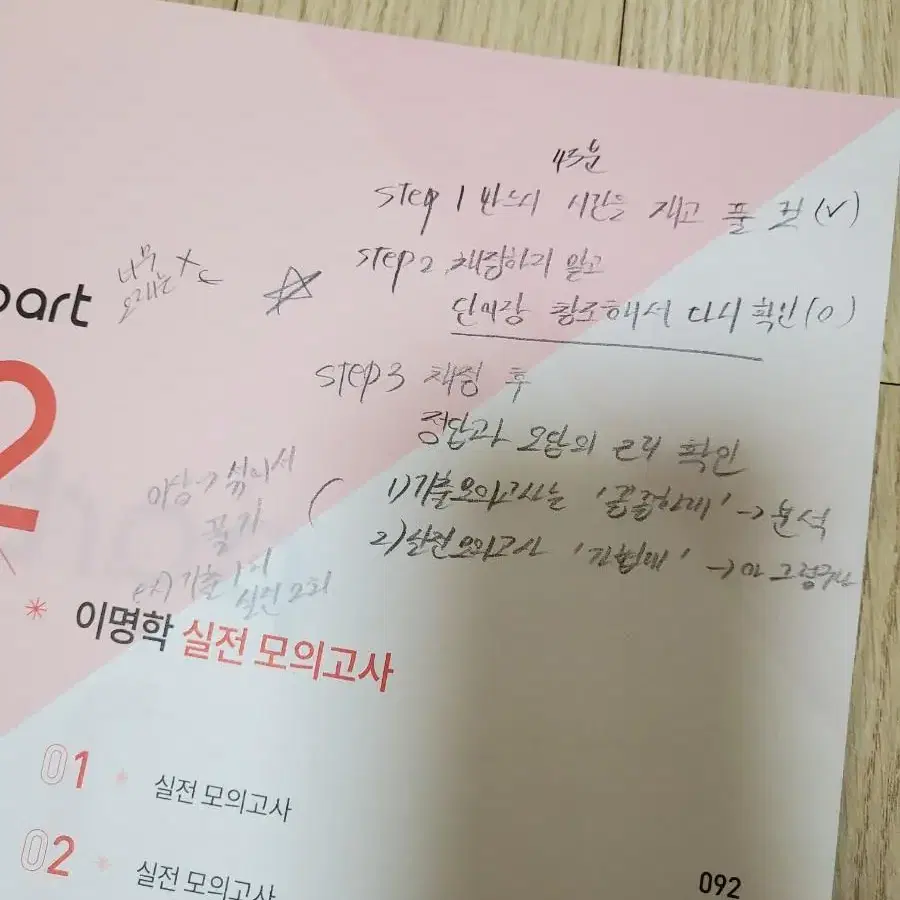 43분
step 1 반드시 시간을 재고 풀 것 (V)
step 2 채점하지 말고
단어장 참조해서 다시 확인 (O)
너무
오래는 X
part
2
step 3 채점 후
정답과 오답의 근거 확인
1) 기출모의고사는 '꼼꼼하게' → 분석
2) 실전모의고사 '가볍게' → 아 그렇구나
섞어서
풀기
ex) 기출 1회
실전 2회
이명학 실전 모의고사
01 실전 모의고사
02 실전 모의고사
092